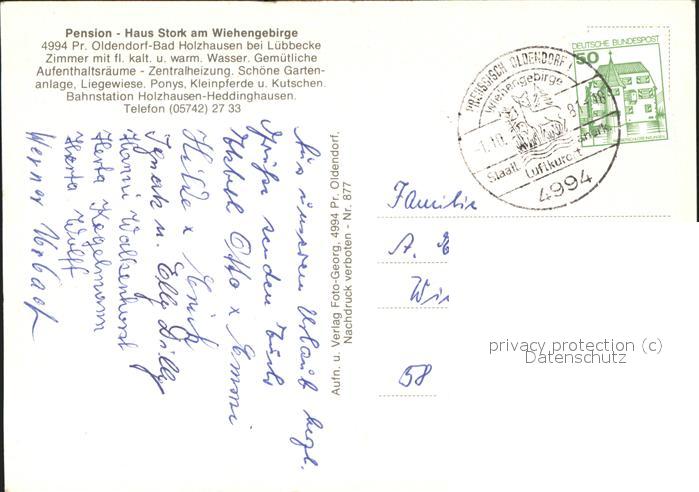 Pension - Haus Stork am Wiehengebirge
4994 Pr. Oldendorf-Bad Holzhausen bei Lübbecke
Zimmer mit fl. kalt. u. warm. Wasser. Gemütliche
Aufenthaltsräume - Zentralheizung. Schöne Garten-
anlage, Liegewiese. Ponys, Kleinpferde u. Kutschen.
Bahnstation Holzhausen-Heddinghausen.
Telefon (05742) 27 33
Aus unserem Urlaub hegl.
Grüße senden Euch
Otto x Emmi
Hilde x Erich
Ignatz u. Elly Dilly
Hanni
Herta Kegelmann
Herta Wulff
Werner
Aufn. u. Verlag Foto-Georg, 4994 Pr. Oldendorf,
Nachdruck verboten - Nr. 877
PREUSSISCH OLDENDORF
Wiehengebirge
-1.10.
81-16
Staatl. Luftkurort
4994
DEUTSCHE BUNDESPOST
50
Familie
A.
Wi
58
privacy protection (c)
Datenschutz